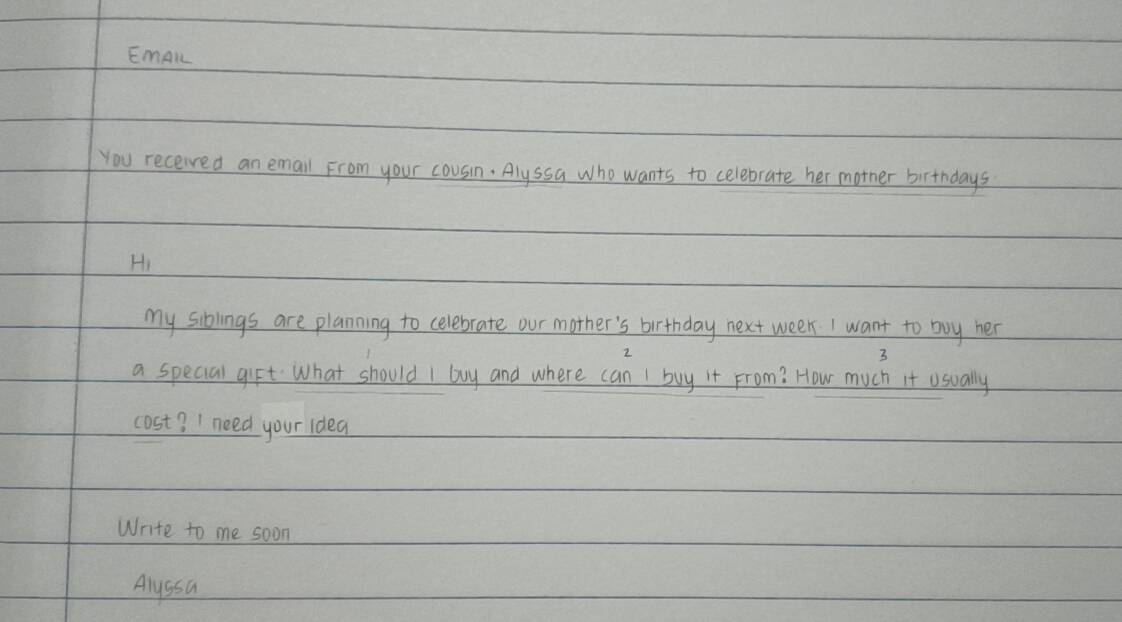 EMAIL
You received an email From your cousin. Alyssa who wants to celebrate her mother birthdays.
Hi
My siblings are planning to celebrate our mother's birthday next week. I want to buy her
1 2 3
a special gift. What should I buy and where can I buy it From? How much it usually
cost? I need your idea
Write to me soon
Alyssa